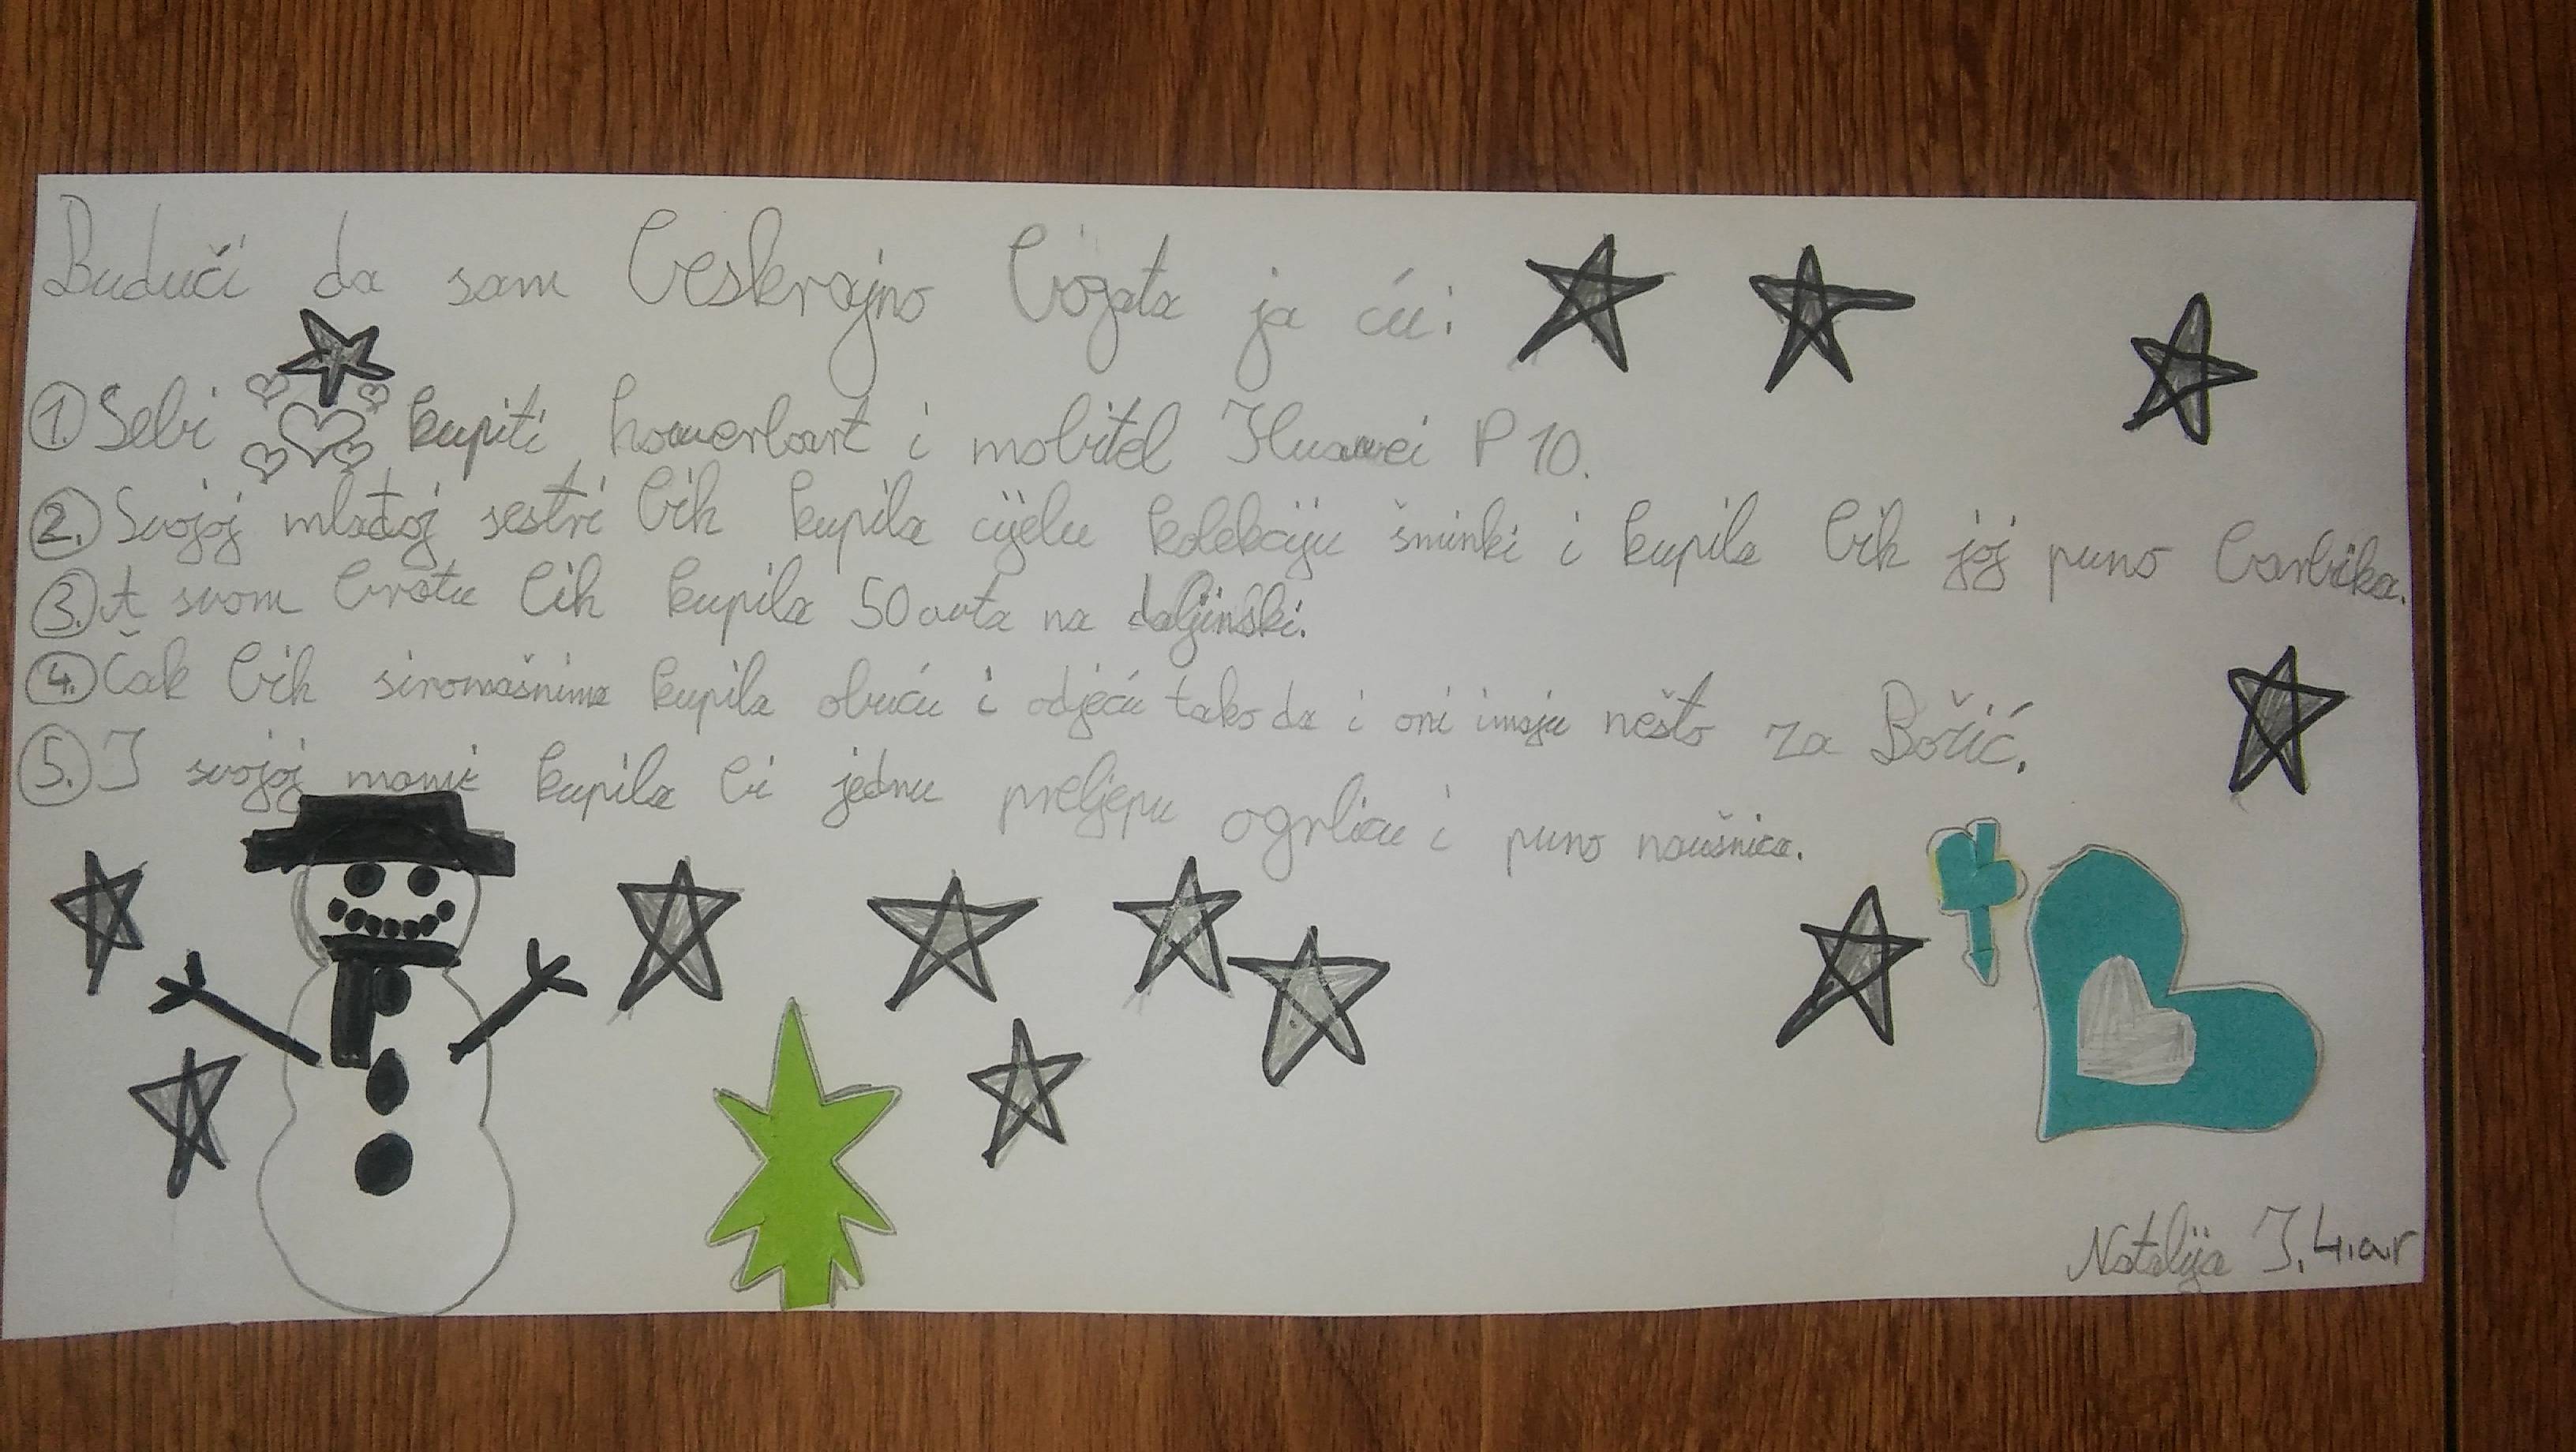 Budući da sam beskrajno bogata ja ću:
1. Sebi kupiti howerbort i mobitel Huawei P 10.
2. Svojoj mlađoj sestri bih kupila cijelu kolekciju šminki i kupila bih joj puno barbika.
3. A svom bratu bih kupila 50 auta na daljinski.
4. Čak bih siromašnima kupila obuću i odjeću tako da i oni imaju nešto za Božić.
5. I svojoj mami kupila bi jednu preljepu ogrlicu i puno naušnica.
Natalija I. 4.a.r